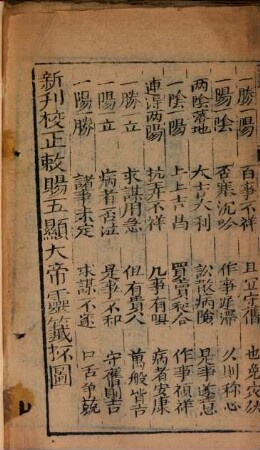 一勝一陽 百事不祥 且宜守舊 也免灾殃
一陽一陰 否寒沉吟 作事遲滯 久則称心
两陰落地 大吉大利 訟散病險 是事遂息
一陰一陽 上上吉昌 買賣和合 作事禎祥
連得两陽 抗弄不祥 几事有唄 病者安康
一勝一立 求謀用急 但有貴人 萬般皆吉
一陽一立 病者否泣 是事不和 守舊則吉
一陽一勝 諸事未定 求謀不遂 口舌争競
新刊校正敕賜五顯大帝靈籤杯圖